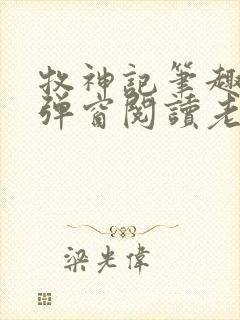 牧神記筆趣
彈窗閱讀老
梁光偉